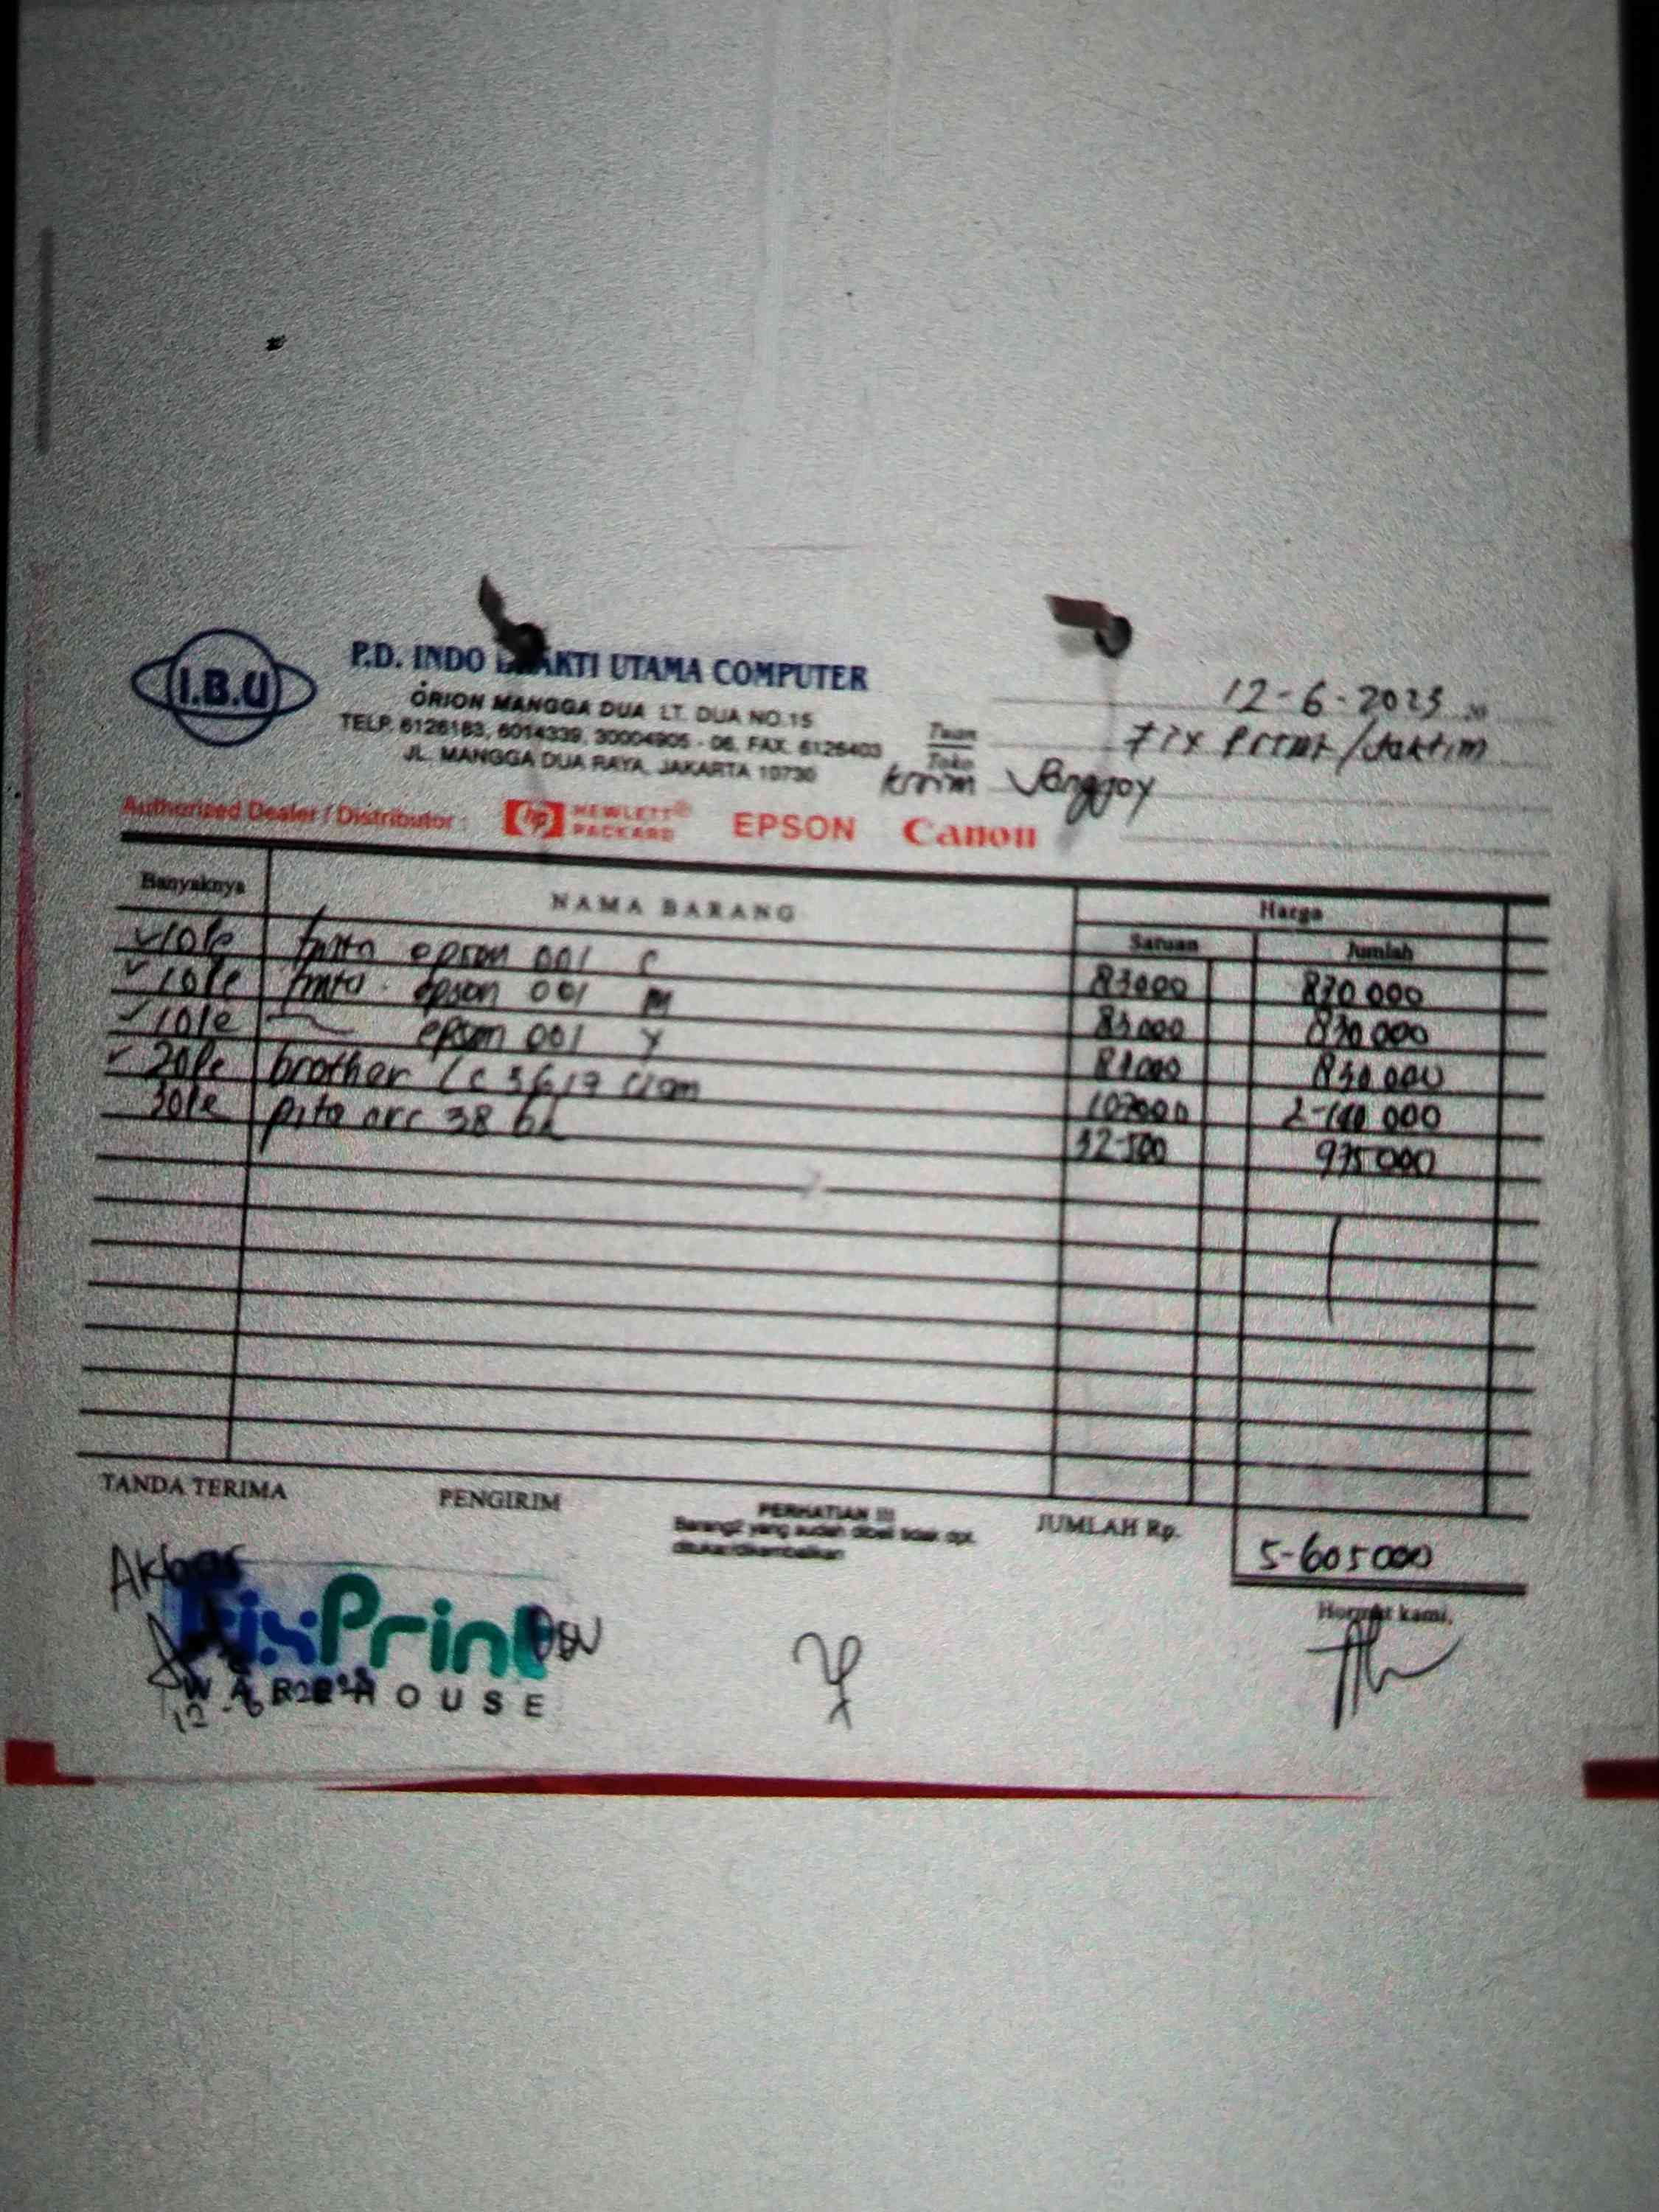 I.B.U
P.D. INDO BHAKTI UTAMA COMPUTER
ORION MANGGA DUA LT. DUA NO.15
TELP. 6126183, 6014339, 30004905 - 06, FAX. 6126403
JL. MANGGA DUA RAYA, JAKARTA 10730
12-6-2023
Tuan
Toko
Fix Print / Jaktim
kirim
Authorized Dealer / Distributor :
hp HEWLETT® PACKARD
EPSON
Canon
Banyaknya NAMA BARANG Harga
Satuan Jumlah
10 tinta epson 001 C 83000 830 000
10 tinta epson 001 M 83000 830 000
10 epson 001 Y 83000 830 000
20 brother LC 3617 107000 2-140 000
30 pita 38 32-500 975 000
TANDA TERIMA PENGIRIM
PERHATIAN !!!
Barang2 yang sudah dibeli tidak dpt.
ditukar/dikembalikan
JUMLAH Rp. 5-605 000
Hormat kami,
Akbar
FixPrint
WAREHOUSE